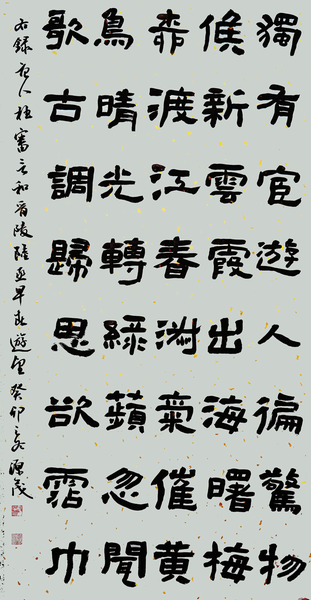 獨有宦遊人徧驚物
候新雲霞出海曙梅
柳渡江春淑氣催黃
鳥晴光轉綠蘋忽聞
歌古調歸思欲霑巾
右錄唐人杜審言和晉陵陸丞早春遊望癸卯